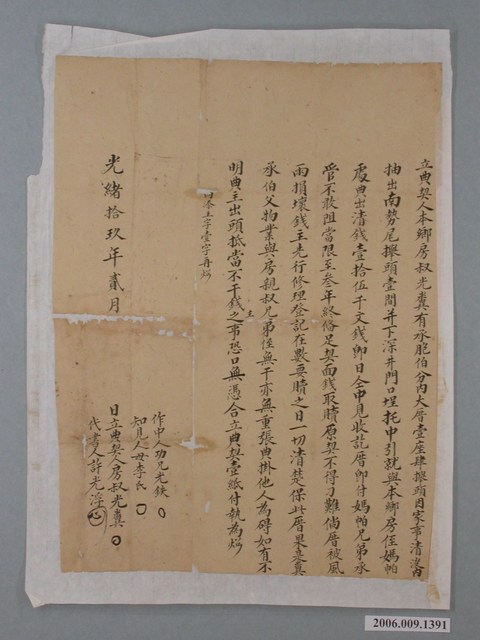 立典契人本鄉房叔光糞有承胞伯分內大厝壹座肆攑頭因家事清淡內
抽出南勢尾攑頭壹間并下深井門口埕托中引就與本鄉房侄媽帕
處典出清錢壹拾伍千文錢即日仝中見收訖厝即付媽帕兄弟承
管不敢阻當限至叁年終俻足契面錢取贖原契不得刁難倘厝被風
雨損壞錢主先行修理登記在數要贖之日一切清楚保此厝果是糞
承伯父物業與房親叔兄弟侄無干亦無重張典掛他人為碍如有不
明典主出頭抵當不干錢主之事恐口無憑合立典契壹紙付執為炤
主字壹字再炤
光緒拾玖年貳月 日立典契人房叔光糞
作中人功兄光鉄
知見人母李氏
代書人許光淫
2006.009.1391